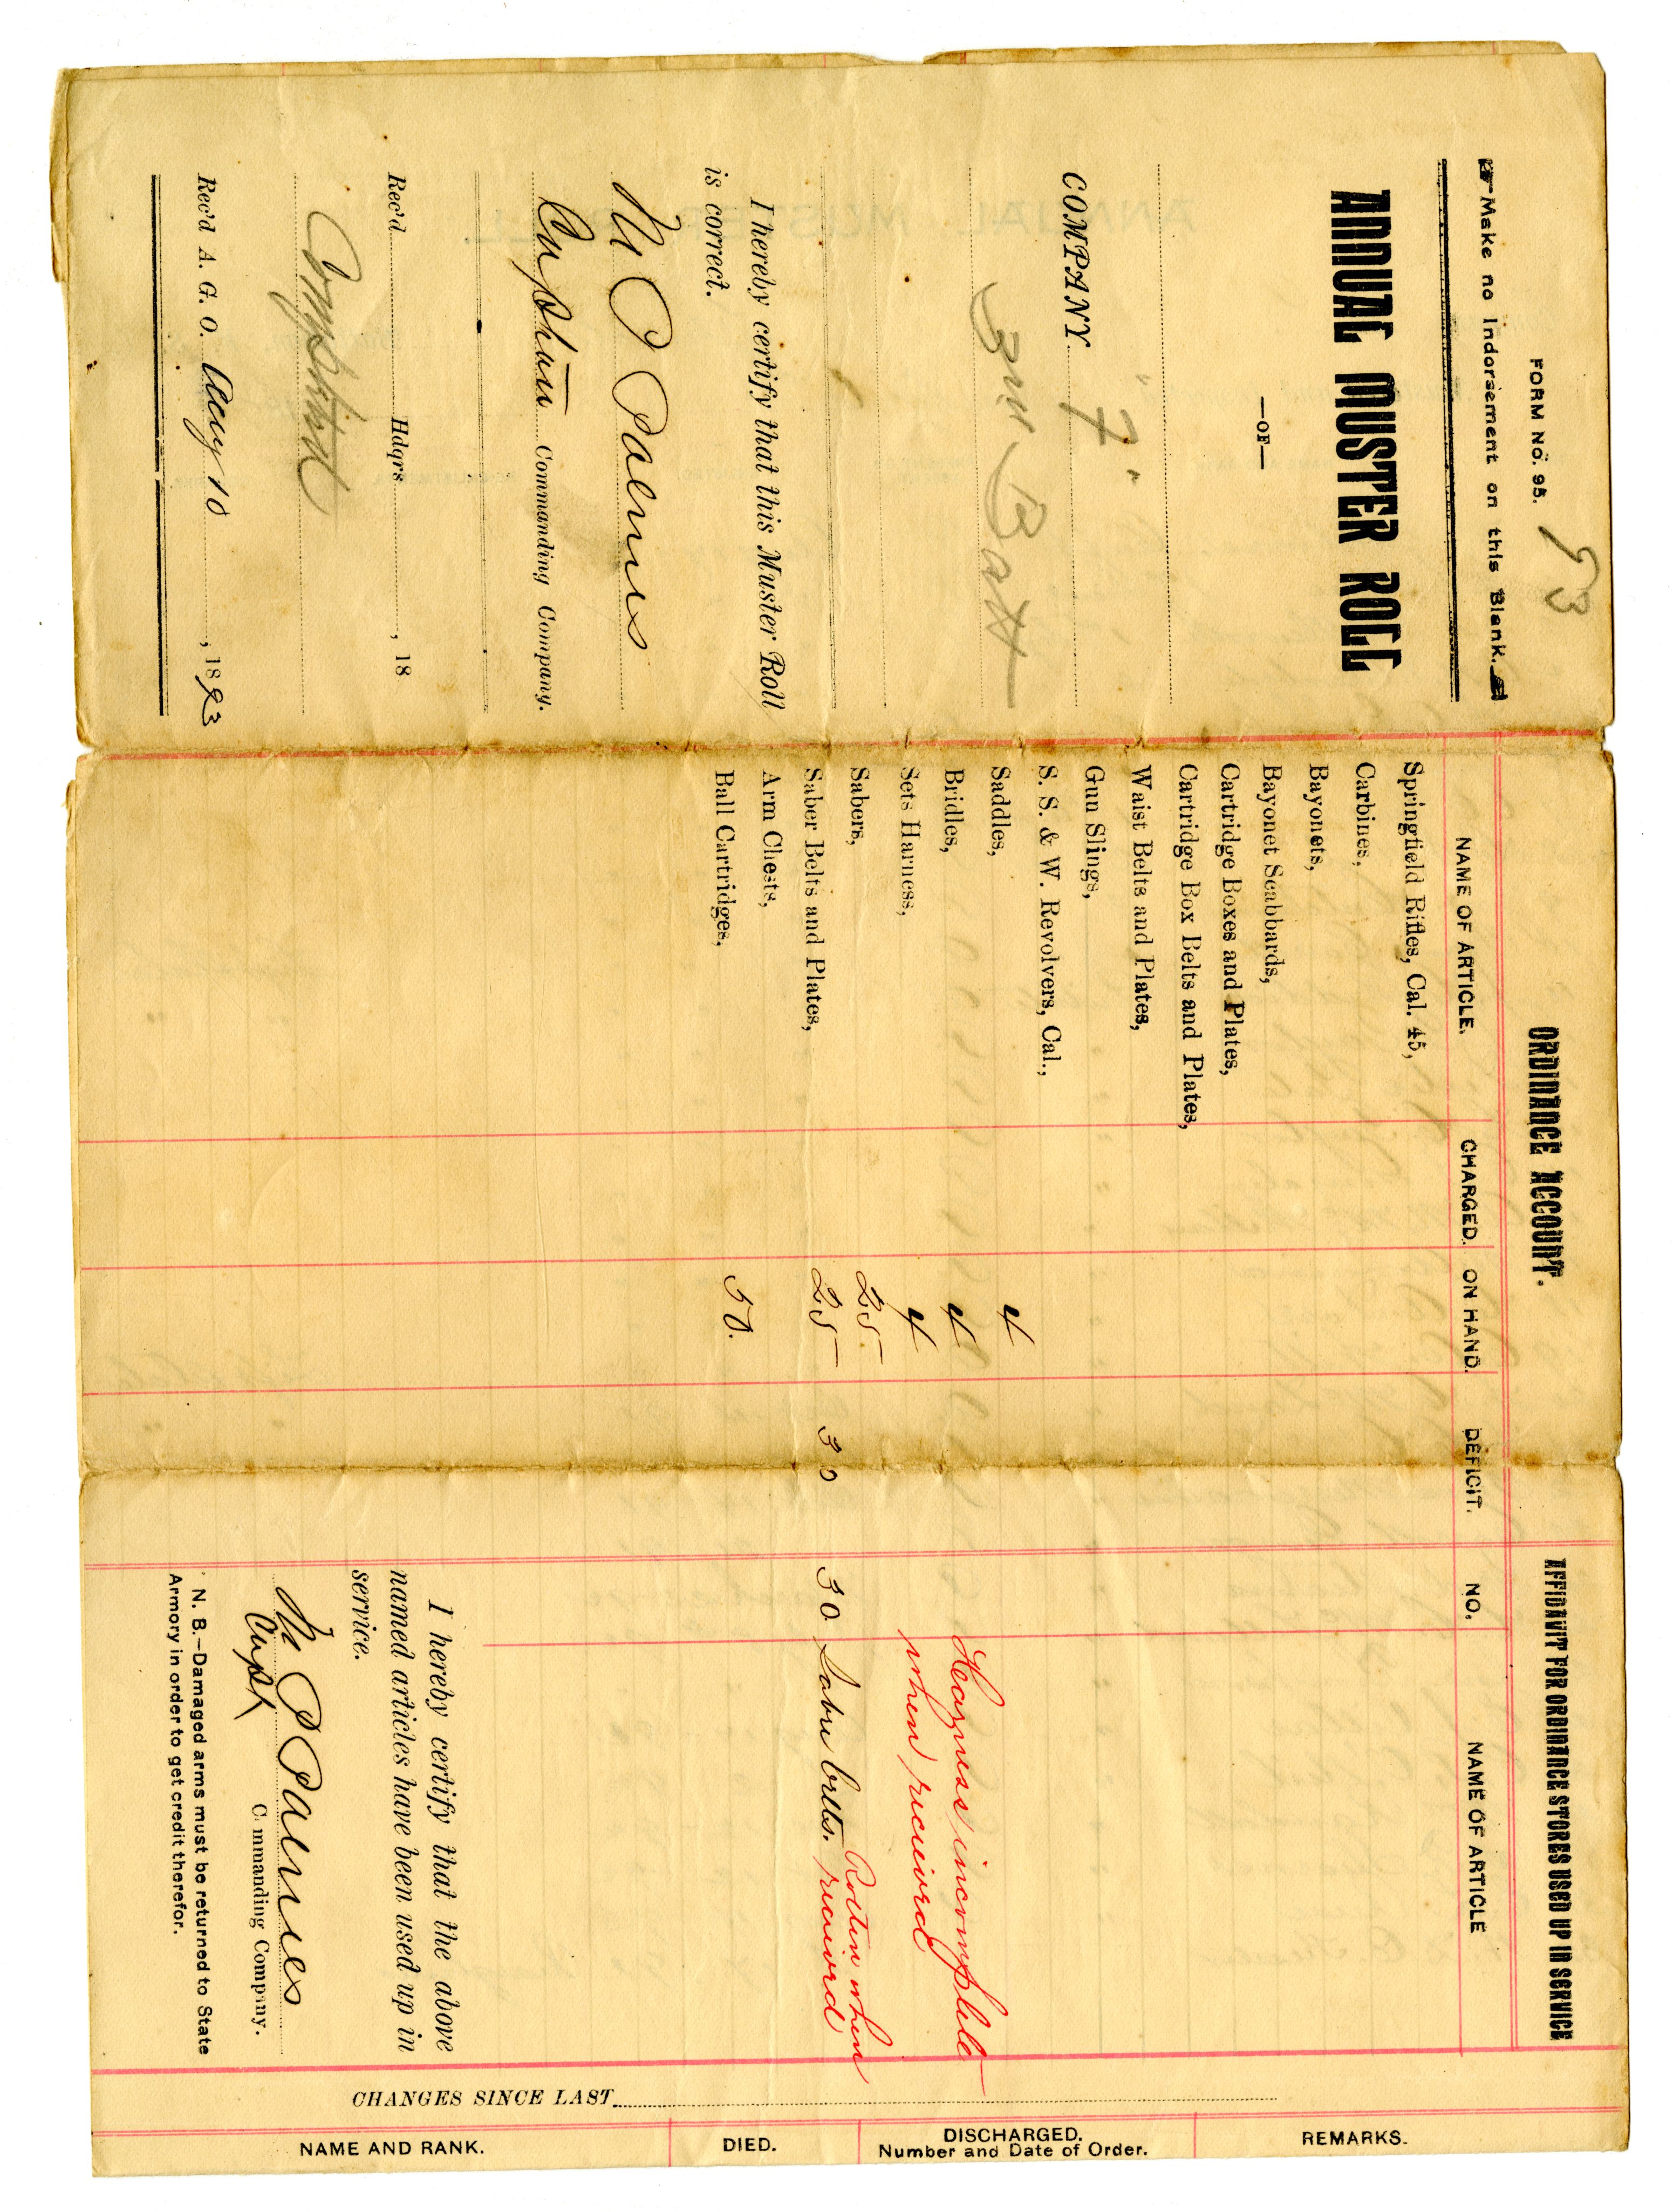 FORM NO. 95. 93
Make no Indorsement on this Blank.
ANNUAL MUSTER ROLL
—OF—
COMPANY "F"
3rd Batt
I hereby certify that this Muster Roll
is correct.
M P Palmes
Captain Commanding Company.
Rec'd Hdqrs , 18
Rec'd A. G. O. Aug 10 , 1893
ORDINANCE ACCOUNT.
NAME OF ARTICLE. CHARGED. ON HAND. DEFICIT.
Springfield Rifles, Cal. 45,
Carbines,
Bayonets,
Bayonet Scabbards,
Cartridge Boxes and Plates,
Cartridge Box Belts and Plates,
Waist Belts and Plates,
Gun Slings,
S. S. & W. Revolvers, Cal.,
Saddles, 4
Bridles, 4
Sets Harness, 4
Sabers, 25
Saber Belts and Plates, 25 30
Arm Chests,
Ball Cartridges, 50.
AFFIDAVIT FOR ORDINANCE STORES USED UP IN SERVICE
NO. NAME OF ARTICLE
Hearness incomplete
when received
30 Sabre belts. Rotten when
received
I hereby certify that the above
named articles have been used up in
service.
M P Palmes
Capt C mmanding Company.
N. B.—Damaged arms must be returned to State
Armory in order to get credit therefor.
CHANGES SINCE LAST
NAME AND RANK. DIED. DISCHARGED. REMARKS.
Number and Date of Order.